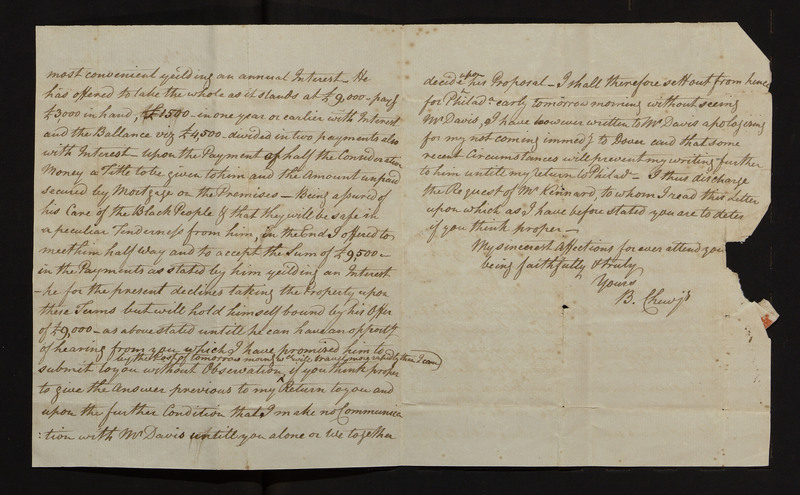 most convenient yeilding an annual Interest – He
has offered to take the whole as it stands at £9,000 – pay g
£3,000 in hand, £1500 – in one year or earlier with Interest
and the Ballance viz £4,500 – divided in two payments also
with Interest – upon the Payment of half the Consideration
Money a Title to be given to him and the Amount unpaid
secured by Mortgage on the Premises – Being assured of
his Care of the Black People & that they will be safe in
a peculiar Tenderness from him, in the End I offered to
meet him half way and to accept the Sum of £9,500 –
in the Payments as stated by him yeilding an Interest
– he for the present declines taking the Property upon
these Terms but will hold himself bound by his Offer
of £9,000 – as above stated untill he can have an opporty
of hearing from you which I have promised him to
by the Post of tomorrow morning wch will travel more rapidly than I can
submit to you without Observation, if you think proper
to give the Answer previous to my Return to you and
upon the further Condition that I make no Communica
:tion with Mr Davis untill you alone or We together
decide upon his Proposal – I shall therefore sett out from hence
for Philada early tomorrow morning without seeing
Mr Davis, I have however written to Mr Davis apologising
for my not coming immedy to Dover and that some
recent Circumstances will prevent my writing further
to him untill my Return to Philada – I thus discharge
the Request of Mr Kinnard, to whom I read this Letter
upon which as I have before stated you are to deter
if you think proper –
My sincerest Affections for ever attend you
being faithfully & truly
Yours
B. Chew Jr